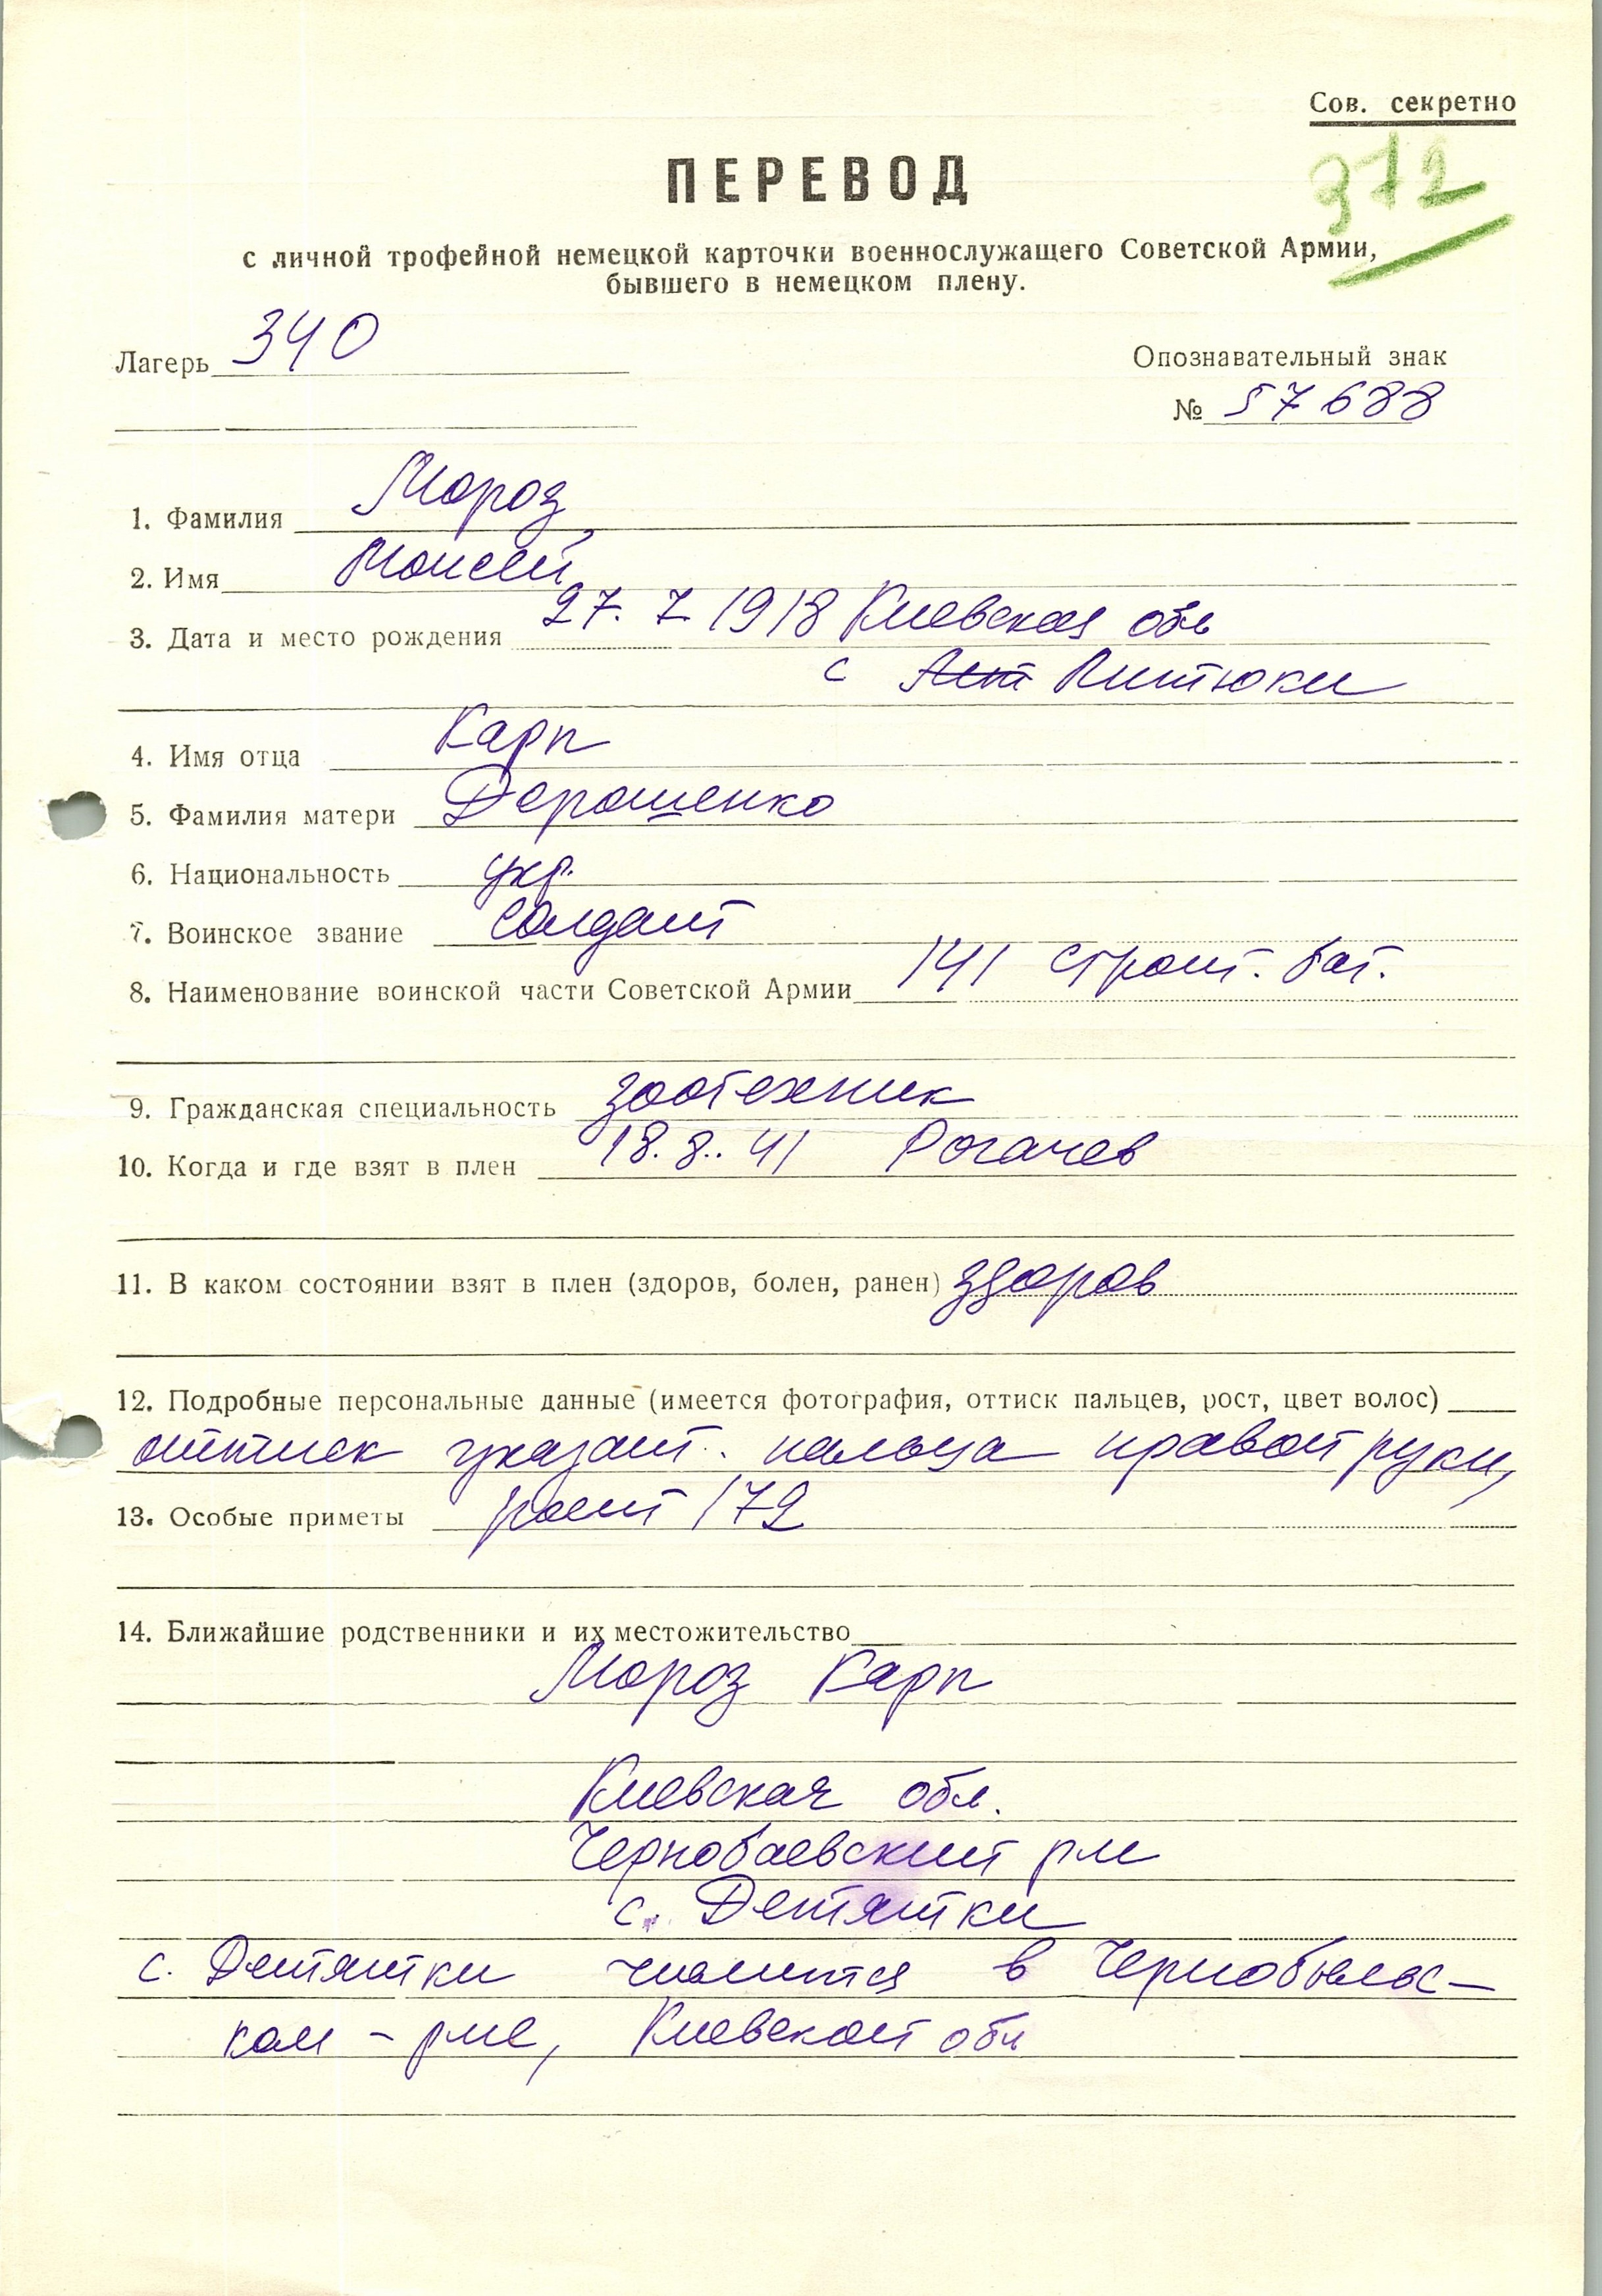 Сов. секретно
372
ПЕРЕВОД
с личной трофейной немецкой карточки военнослужащего Советской Армии,
бывшего в немецком плену.
Лагерь 340
Опознавательный знак
№ 57688
1. Фамилия Мороз
2. Имя Моисей
3. Дата и место рождения 27. 7 1918 Киевская обл
с Питюки
4. Имя отца Карп
5. Фамилия матери Дорошенко
6. Национальность укр.
7. Воинское звание солдат
8. Наименование воинской части Советской Армии 141 строит. бат.
9. Гражданская специальность зоотехник
10. Когда и где взят в плен 18. 8. 41 Рогачев
11. В каком состоянии взят в плен (здоров, болен, ранен) здоров
12. Подробные персональные данные (имеется фотография, оттиск пальцев, рост, цвет волос)
оттиск указат. пальца правой руки,
13. Особые приметы рост 172
14. Ближайшие родственники и их местожительство
Мороз Карп
Киевская обл.
Чернобаевский р-н
с. Детятки
с. Детятки числится в Чернобыльс-
ком р-не, Киевской обл